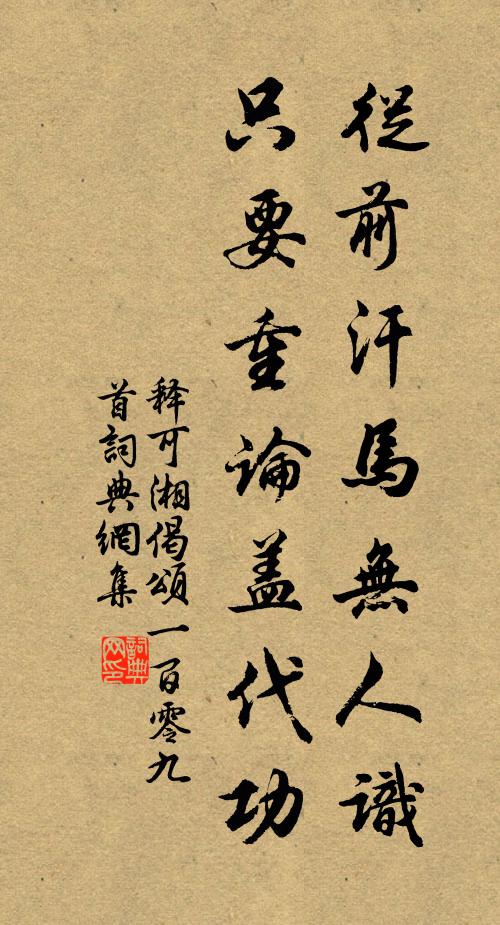 從前汗馬無人識
只要重論蓋代功
释可湘偈頌一百零九
首詞典網集
詞典
网印